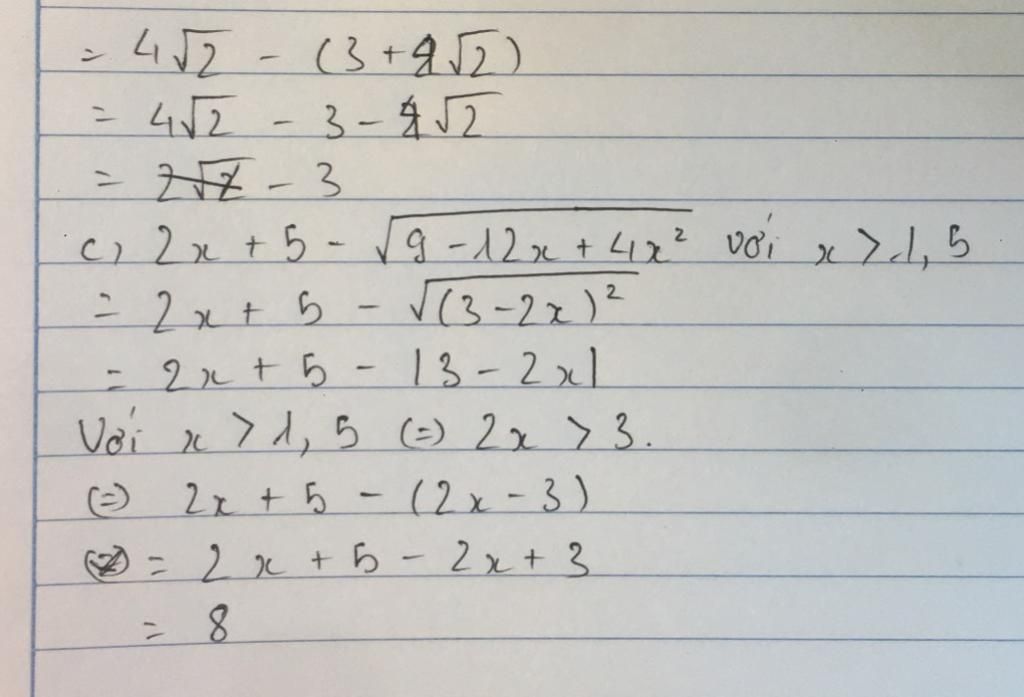 = 4√2 - (3 + 4√2)
= 4√2 - 3 - 4√2
= - 3
c) 2x + 5 - √(9 - 12x + 4x²) với x > 1,5
= 2x + 5 - √((3 - 2x)²)
= 2x + 5 - |3 - 2x|
Với x > 1,5 (=) 2x > 3.
(=) 2x + 5 - (2x - 3)
= 2x + 5 - 2x + 3
= 8